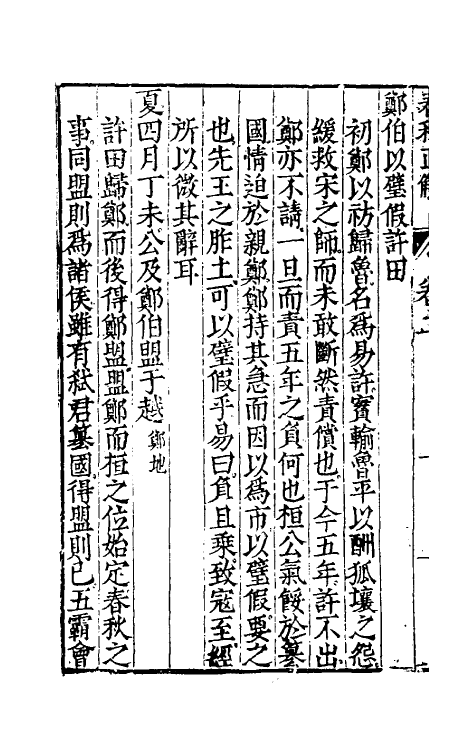 春秋正解　卷之
鄭伯以璧假許田
初鄭以祊歸魯名爲易許實輸魯平以酬狐壤之怨
緩救宋之師而未敢斷然責償也于今五年許不出
鄭亦不請一旦而責五年之負何也桓公氣餒於篡
國情迫於親鄭鄭持其急而因以爲市以璧假要之
也先王之胙土可以璧假乎易曰負且乘致寇至經
所以微其辭耳
夏四月丁未公及鄭伯盟于越鄭地
許田歸鄭而後得鄭盟盟鄭而桓之位始定春秋之
事同盟則爲諸侯雖有弒君篡國得盟則已五霸會